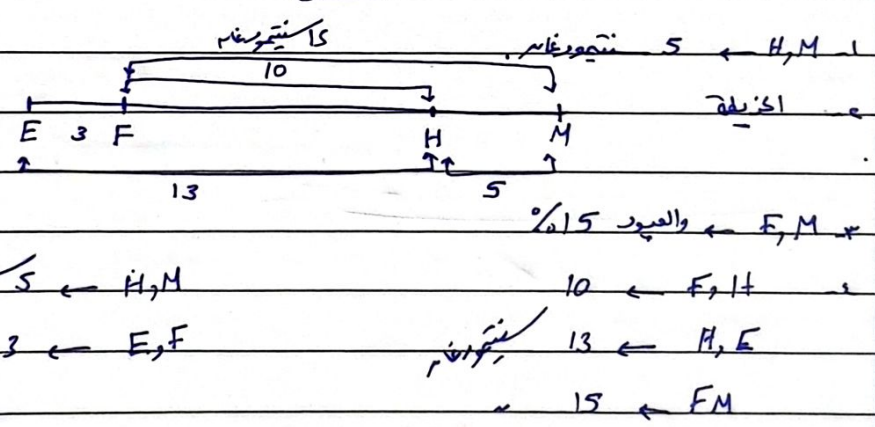 ١- H,M ← 5 سنتيمورغان
15 سنتيمورغان
10
٢- الخريطة
E 3 F H M
13 5
٣- F,M ← والعبور 15%
٤- F,H ← 10 H,M ← 5
H,E ← 13 سنتيمورغان E,F ← 3
FM ← 15 "